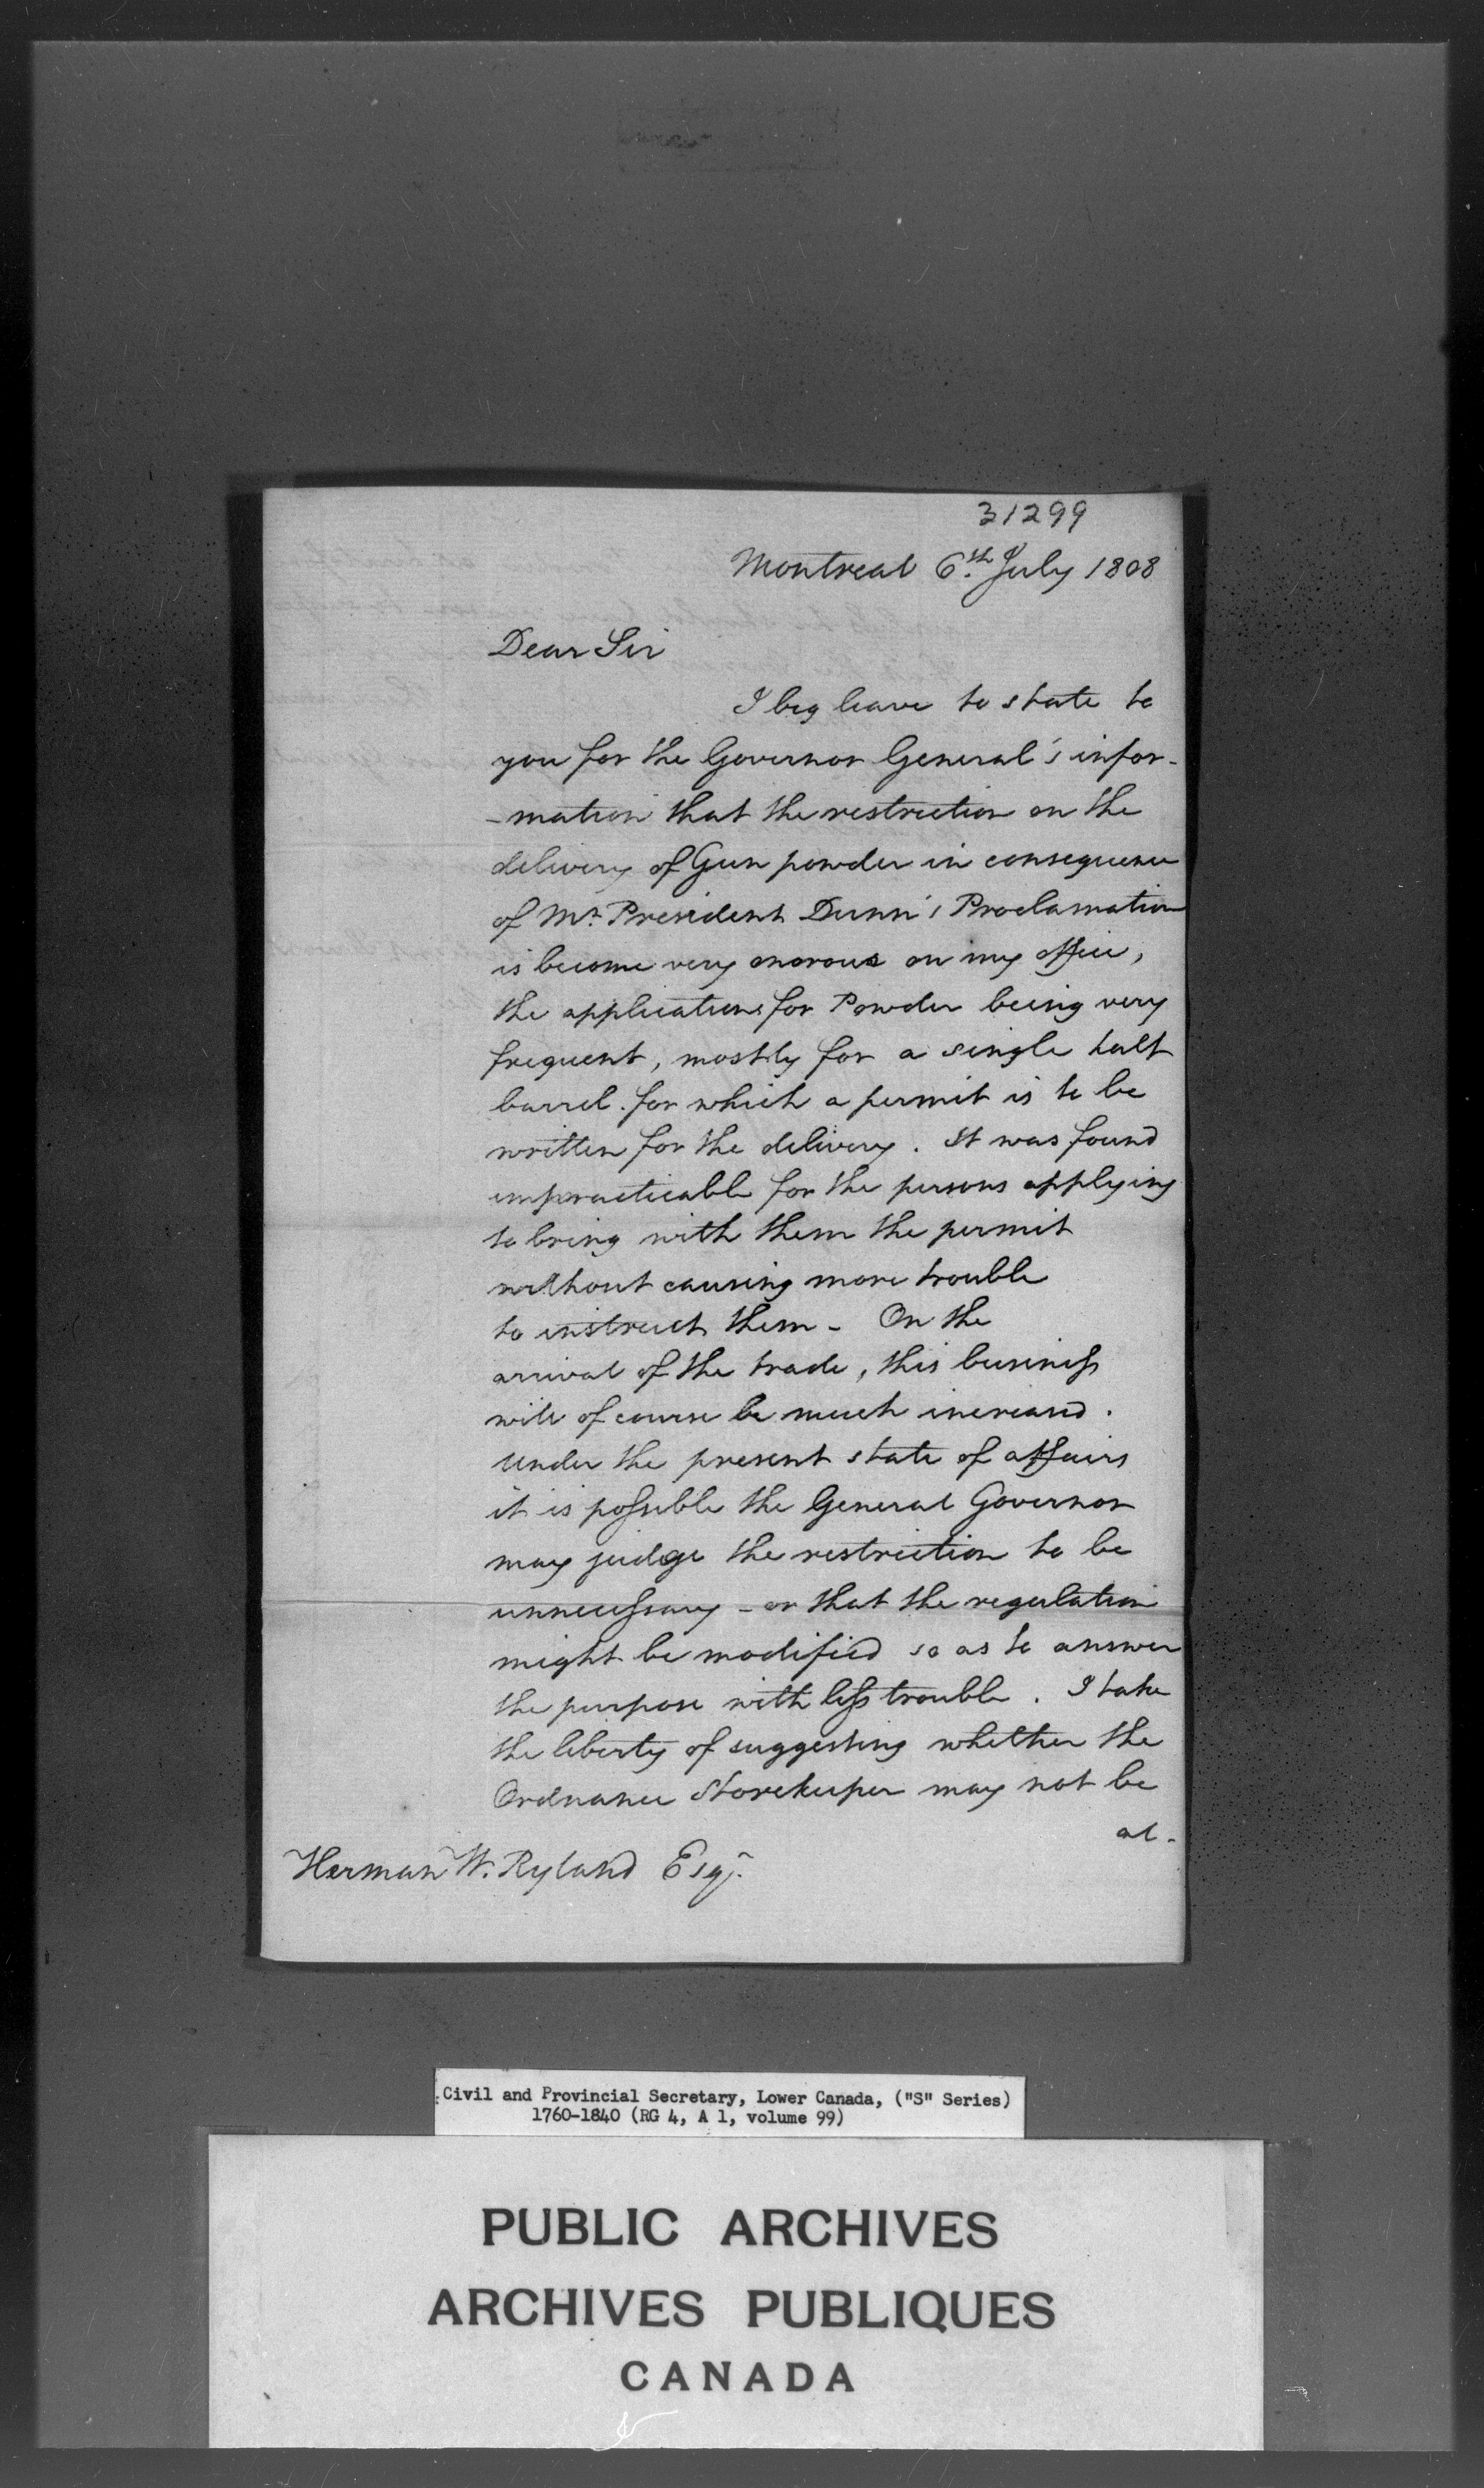 31299
Montreal 6.th July 1808
Dear Sir
I beg leave to state to
you for the Governor General's infor-
-mation that the restriction on the
delivery of Gun powder in consequence
of Mr. President Dunn's Proclamation
is become very onorous on my office,
the applications for Powder being very
frequent, mostly for a single half
barrel. for which a permit is to be
written for the delivery. It was found
impracticable for the persons applying
to bring with them the permit
without causing more trouble
to instruct them - On the
arrival of the trade, this business
will of course be much increased.
Under the present state of affairs
it is possible the General Governor
may judge the restriction to be
unnecessary - or that the regulation
might be modified so as to answer
the purpose with less trouble. I take
the liberty of suggesting whether the
Ordnance Storekeeper may not be
al-
Herman W. Ryland Esqr.
Civil and Provincial Secretary, Lower Canada, ("S" Series)
1760-1840 (RG 4, A 1, volume 99)
PUBLIC ARCHIVES
ARCHIVES PUBLIQUES
CANADA